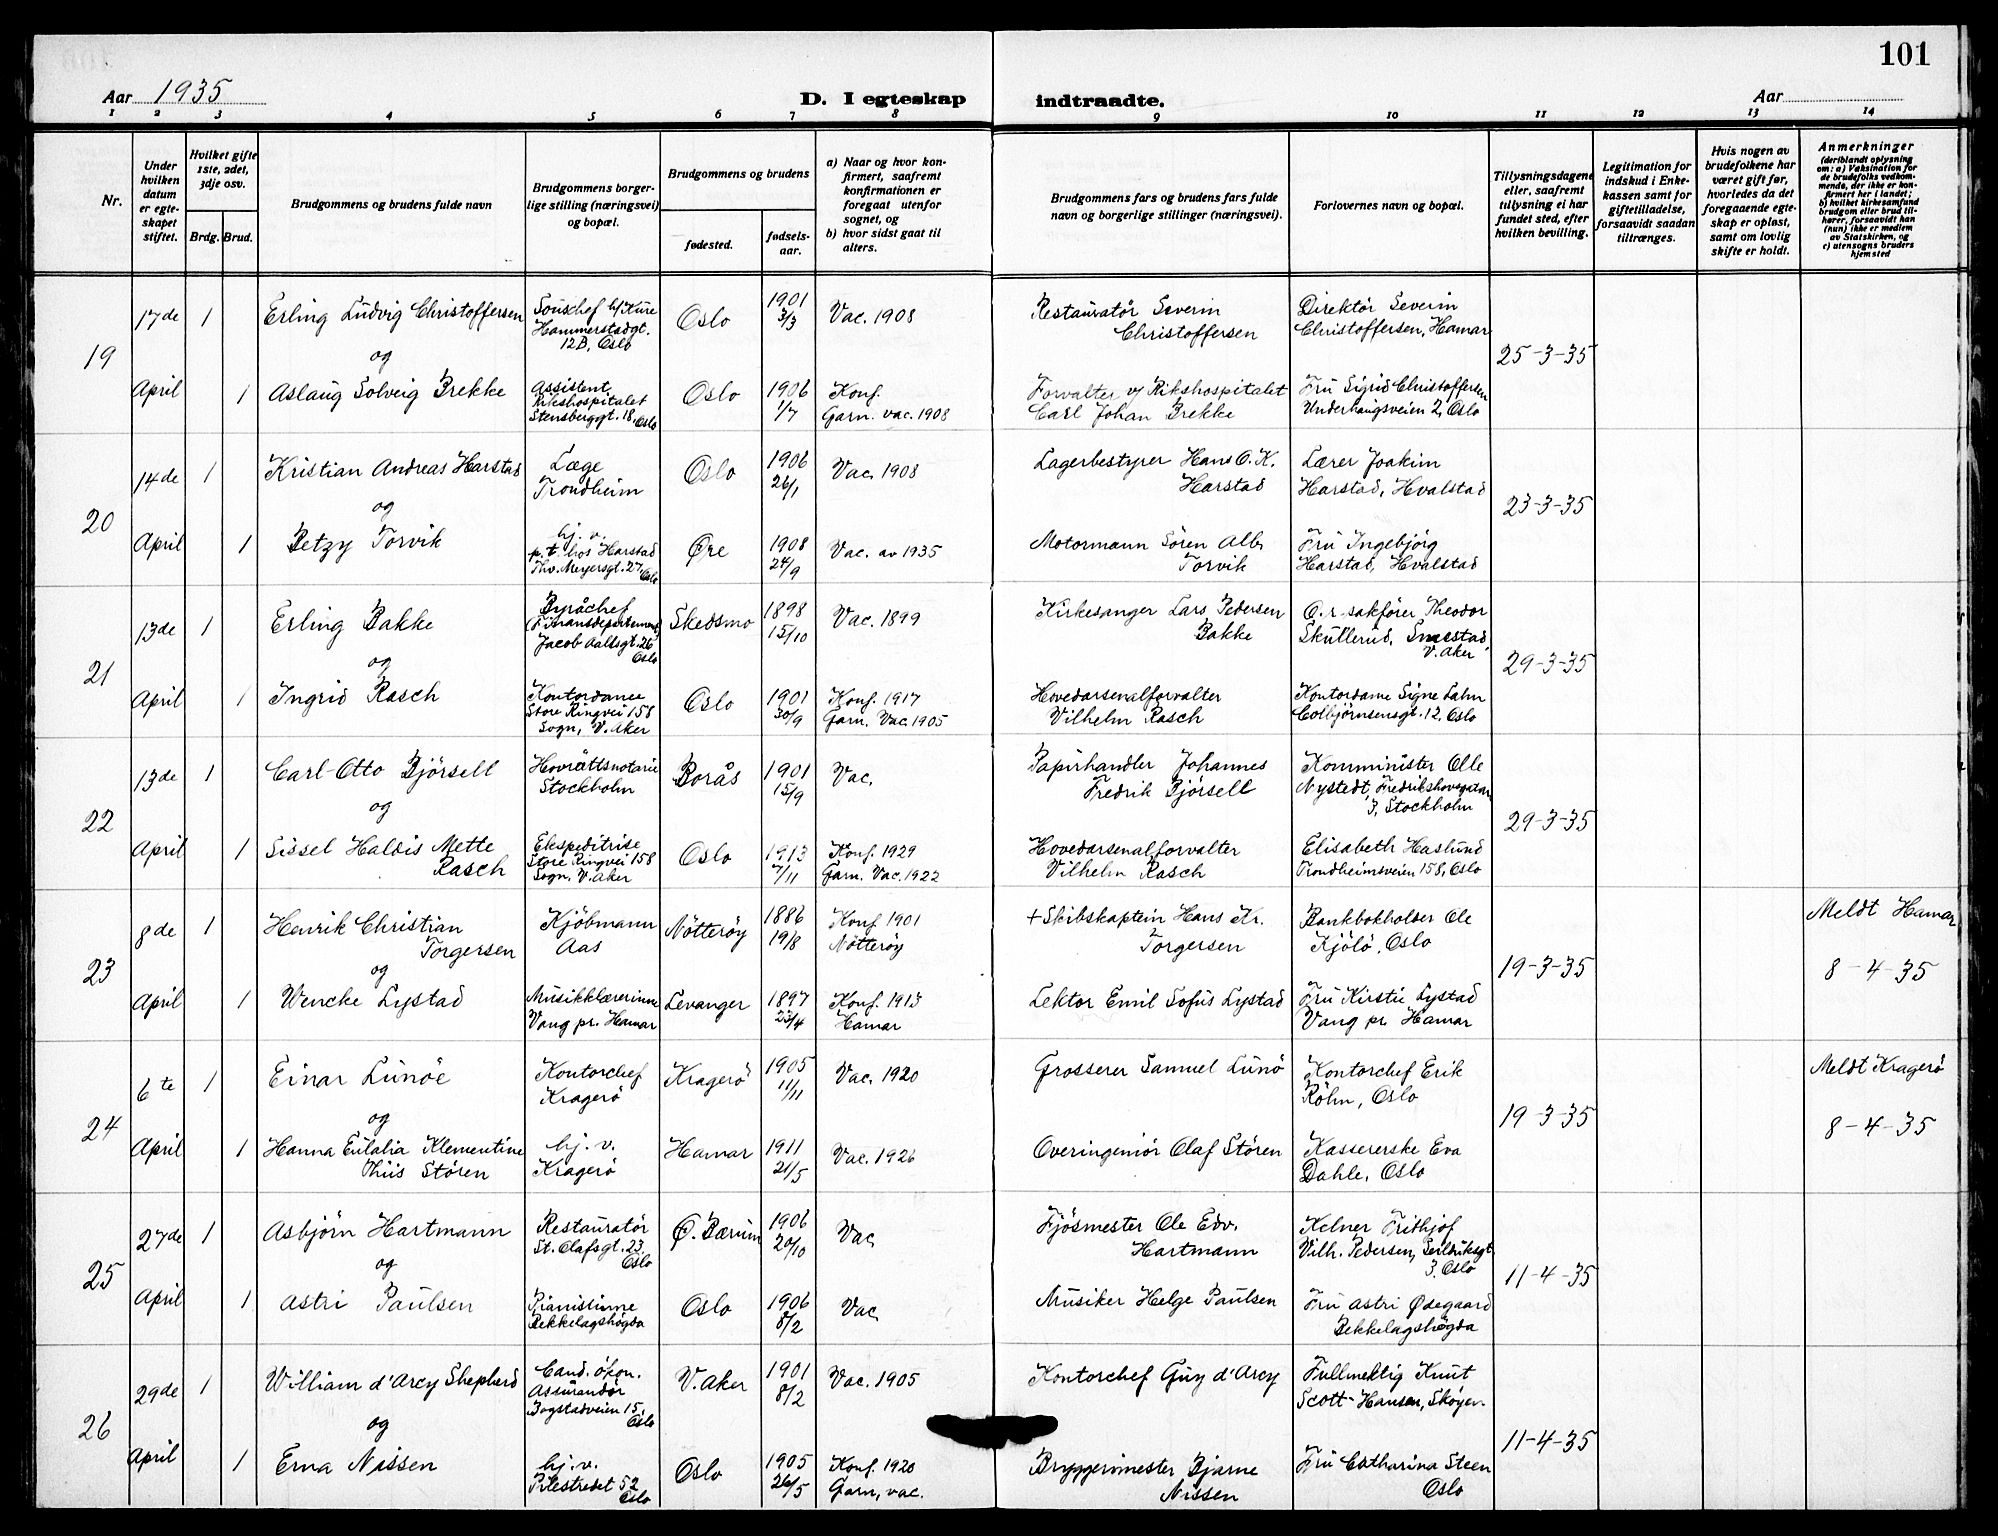 101
Aar 1935
D. I egteskap
indtraadte.
Aar
1 2 3 4 5 6 7 8 9 10 11 12 13 14
Nr.
Under hvilken datum er egteskapet stiftet.
Hvilket gifte 1ste, 2det, 3dje osv.
Brdg. Brud.
Brudgommens og brudens fulde navn
Brudgommens borgerlige stilling (næringsvei) og bopæl.
Brudgommens og brudens
fødested.
fødselsaar.
a) Naar og hvor konfirmert, saafremt konfirmationen er foregaat utenfor sognet, og
b) hvor sidst gaat til alters.
Brudgommens fars og brudens fars fulde navn og borgerlige stillinger (næringsvei).
Forlovernes navn og bopæl.
Tillysningsdagene eller, saafremt tillysning ei har fundet sted, efter hvilken bevilling.
Legitimation for indskud i Enkekassen samt for giftetilladelse, forsaavidt saadan tiltrænges.
Hvis nogen av brudefolkene har været gift før, hvorledes da det foregaaende egteskap er opløst, samt om lovlig skifte er holdt.
Anmerkninger
(deriblandt oplysning om: a) Vaksination for de brudefolks vedkommende, der ikke er konfirmert her i landet;
b) hvilket kirkesamfund brudgom eller brud tilhører, forsaavidt han (hun) ikke er medlem av Statskirken, og
c) utensogns bruders hjemsted
19
17de April
1 Erling Ludvig Christoffersen
Souschef
Hammerstadgt. 12B, Oslo
Oslo
1901 3/3
Vac. 1908
Restauratør Severin Christoffersen
Direktør Severin Christoffersen, Hamar
25-3-35
og
1 Aslaug Solveig Brekke
Assistent Rikshospitalet Stensberggt. 18, Oslo
Oslo
1906 1/7
Konf. Garn. vac. 1908
Forvalter v/ Rikshospitalet Carl Johan Brekke
Fru Sigrid Christoffersen Underhaugsveien 2, Oslo
20
14de April
1 Kristian Andreas Harstad
Læge Trondheim
Oslo
1906 26/1
Vac. 1908
Lagerbestyrer Hans O. K. Harstad
Lærer Joakim Harstad, Hvalstad
23-3-35
og
1 Betzy Torvik
hj. v. p.t. hos Harstad Thv. Meyersgt. 27, Oslo
Øre
1908 24/9
Vac. av 1935
Motormann Sören Alb. Torvik
Fru Ingebjörg Harstad, Hvalstad
21
13de April
1 Erling Bakke
Byråchef (Finansdepartement) Jacob Aallsgt. 26 Oslo
Skedsmo
1898 15/10
Vac. 1899
Kirkesanger Lars Pedersen Bakke
O.r.sakfører Theodor Skullerud, Smestad V. Aker
29-3-35
og
1 Ingrid Rasch
Kontordame Store Ringvei 158 Sogn, V. Aker
Oslo
1901 30/9
Konf. 1917 Garn. Vac. 1905
Hovedarsenalforvalter Vilhelm Rasch
Kontordame Signe Lahn Colbjørnsensgt. 12, Oslo
22
13de April
1 Carl-Otto Björsell
Hovrättsnotarie Stockholm
Borås
1901 15/9
Vac.
Papirhandler Johannes Fredrik Björsell
Komminister Olle Nystedt, 3, Stockholm
29-3-35
og
1 Sissel Haldis Mette Rasch
Ekspeditrise Store Ringvei 158 Sogn, V. Aker
Oslo
1913 7/11
Konf. 1929 Garn. Vac. 1922
Hovedarsenalforvalter Vilhelm Rasch
Elisabeth Haslund Trondheimsveien 158, Oslo
23
8de April
1 Henrik Christian Torgersen
Kjöbmann Aas
Nötteröy
1886 19/8
Konf. 1901 Nötteröy
+ Skibskaptein Hans Kr. Torgersen
Bankbokholder Ole Kjölö, Oslo
19-3-35
Meldt Hamar 8-4-35
og
1 Wencke Lystad
Musikklærerinne Vang pr. Hamar
Levanger
1897 23/4
Konf. 1913 Hamar
Lektor Emil Sofus Lystad
Fru Kirstie Lystad Vang pr Hamar
24
6te April
1 Einar Lunöe
Kontorchef Kragerö
Kragerö
1905 11/11
Vac. 1920
Grosserer Samuel Lunö
Kontorchef Erik Röhn, Oslo
19-3-35
Meldt Kragerö 8-4-35
og
1 Hanna Eulalia Klementine Thiis Stören
hj. v. Kragerö
Hamar
1911 21/5
Vac. 1926
Overingeniör Olaf Stören
Kassererske Eva Dahle, Oslo
25
27de April
1 Asbjörn Hartmann
Restauratör St. Olafsgt. 23, Oslo
Ø. Bærum
1906 20/10
Vac
Fjösmester Ole Edv. Hartmann
Kelner Frithjof Vilh. Pedersen, Seilduksgt. 3, Oslo
11-4-35
og
1 Astri Paulsen
Pianistinne Bekkelagshögda
Oslo
1906 8/2
Vac
Musiker Helge Paulsen
Fru Astri Ødegaard Bekkelagshögda
26
29de April
1 William d'Arcy Shepherd
Cand. økon. Assurandør Bogstadveien 15, Oslo
V. Aker
1901 8/2
Vac. 1905
Kontorchef Guy d'Arcy
Fullmektig Knut Scott-Hansen, Skøyen
11-4-35
og
1 Erna Nissen
hj. v. Pilestredet 52 Oslo
Oslo
1905 26/5
Konf. 1920 Garn, vac.
Bryggerimester Bjarne Nissen
Fru Catharina Steen Oslo